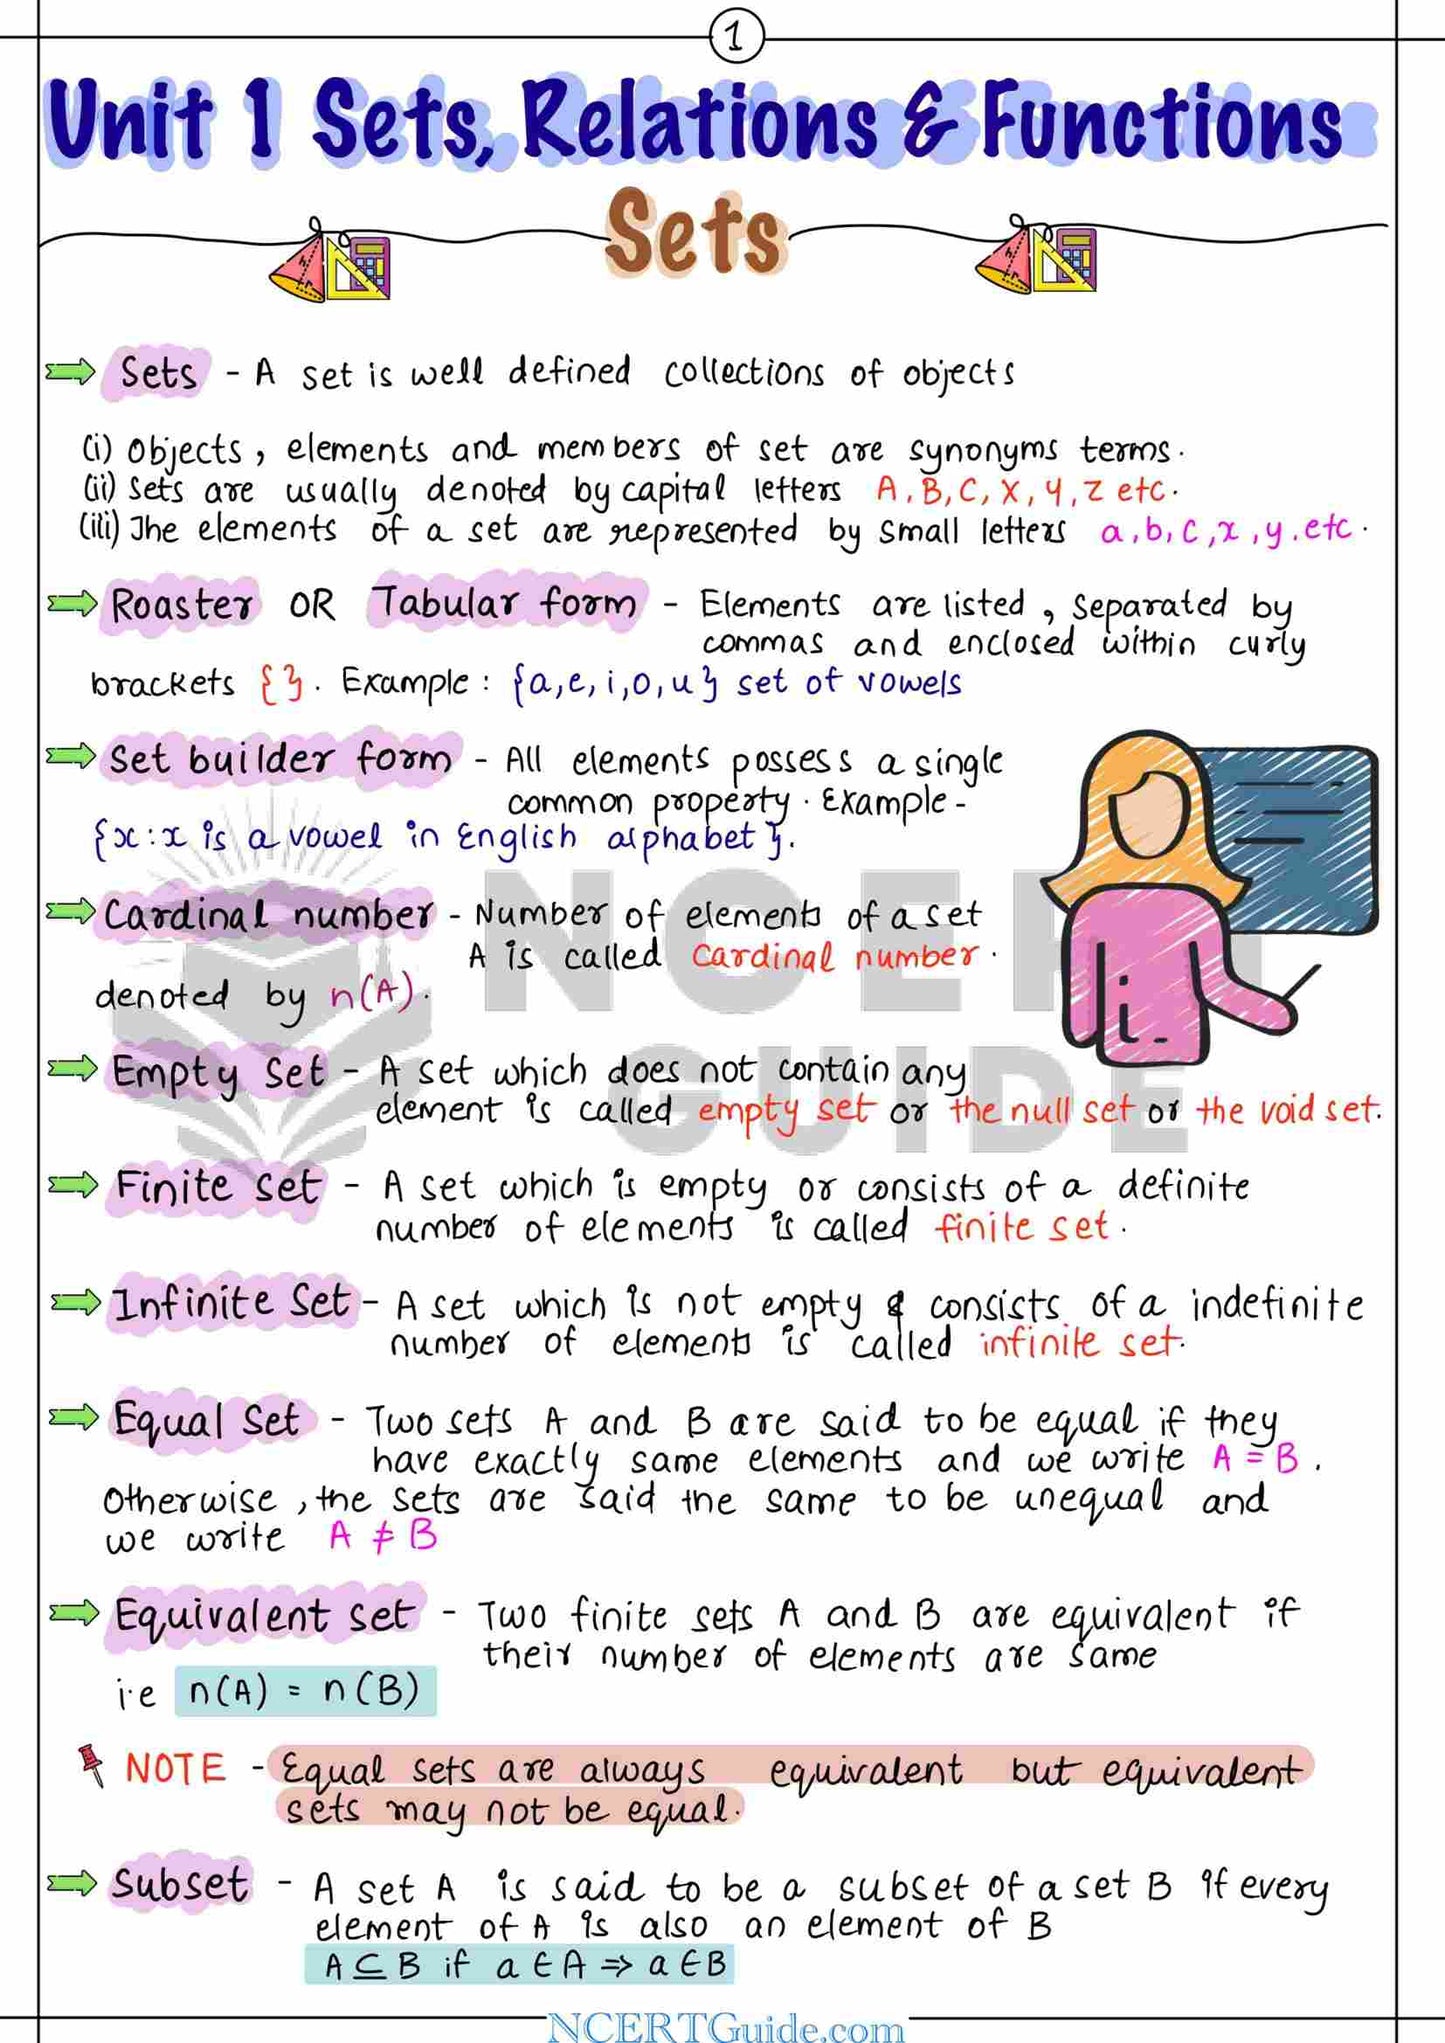 1
Unit 1 Sets, Relations & Functions
Sets
Sets - A set is well defined collections of objects
(i) Objects, elements and members of set are synonyms terms.
(ii) Sets are usually denoted by capital letters A, B, C, X, Y, Z etc.
(iii) The elements of a set are represented by small letters a, b, c, x, y, etc.
Roaster OR Tabular form - Elements are listed, separated by
commas and enclosed within curly
brackets { }. Example: {a, e, i, o, u} set of vowels
Set builder form - All elements possess a single
common property. Example -
{x : x is a vowel in English alphabet}.
Cardinal number - Number of elements of a set
A is called cardinal number.
denoted by n(A).
Empty Set - A set which does not contain any
element is called empty set or the null set or the void set.
Finite set - A set which is empty or consists of a definite
number of elements is called finite set.
Infinite Set - A set which is not empty & consists of a indefinite
number of elements is called infinite set.
Equal Set - Two sets A and B are said to be equal if they
have exactly same elements and we write A = B.
Otherwise, the sets are said the same to be unequal and
we write A ≠ B
Equivalent set - Two finite sets A and B are equivalent if
their number of elements are same
i.e n(A) = n(B)
NOTE - Equal sets are always equivalent but equivalent
sets may not be equal.
Subset - A set A is said to be a subset of a set B if every
element of A is also an element of B
A ⊆ B if a ∈ A ⇒ a ∈ B
NCERT
GUIDE
NCERTGuide.com